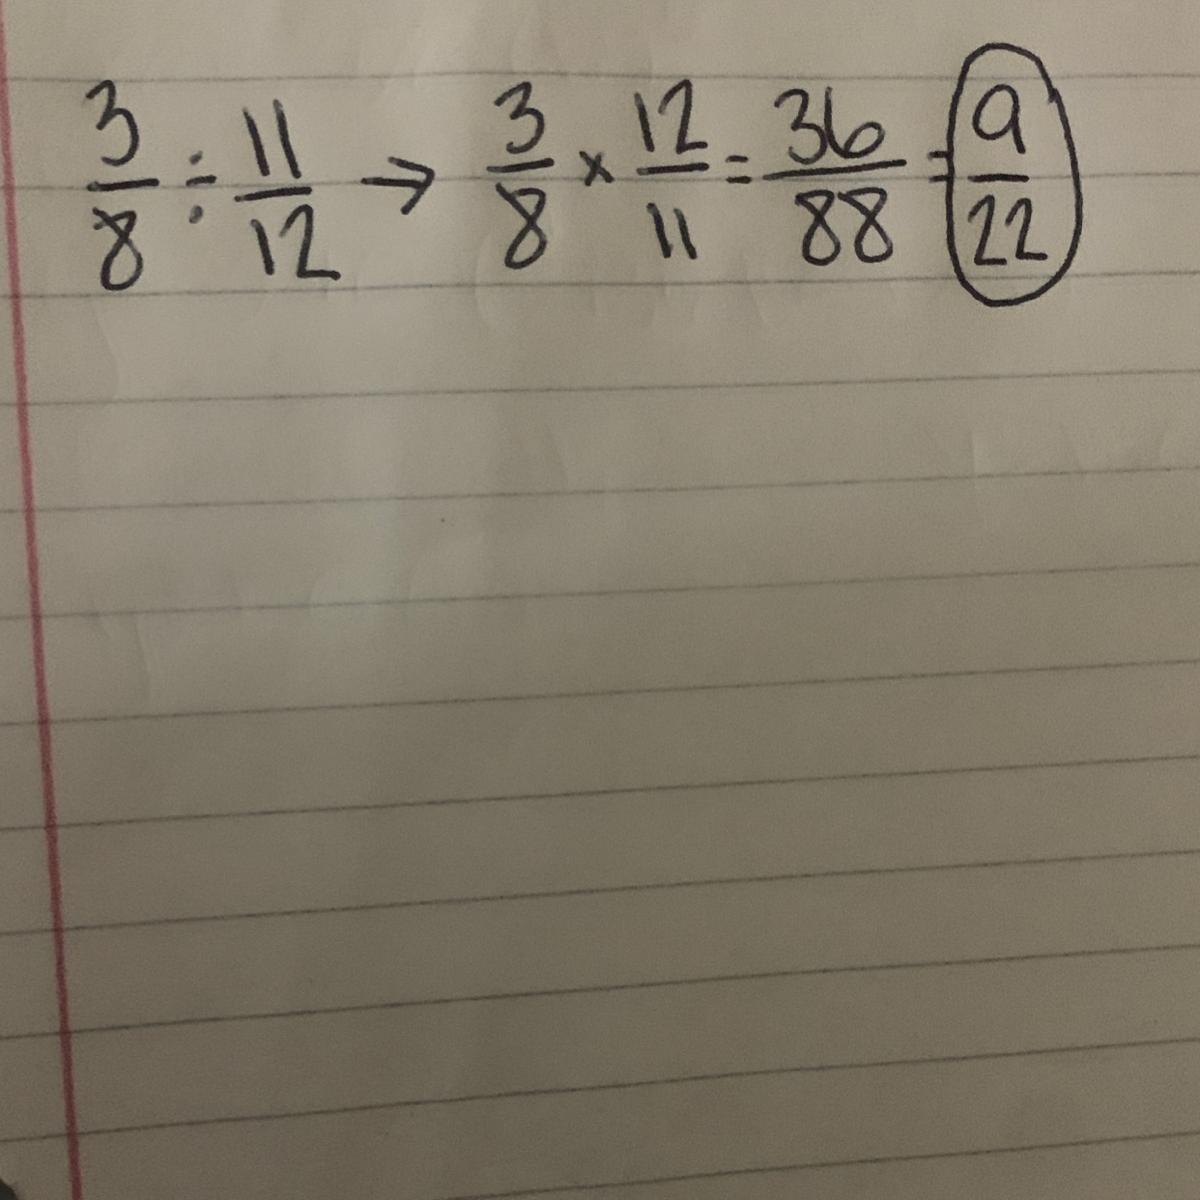 3/8 ÷ 11/12 → 3/8 × 12/11 = 36/88 = 9/22